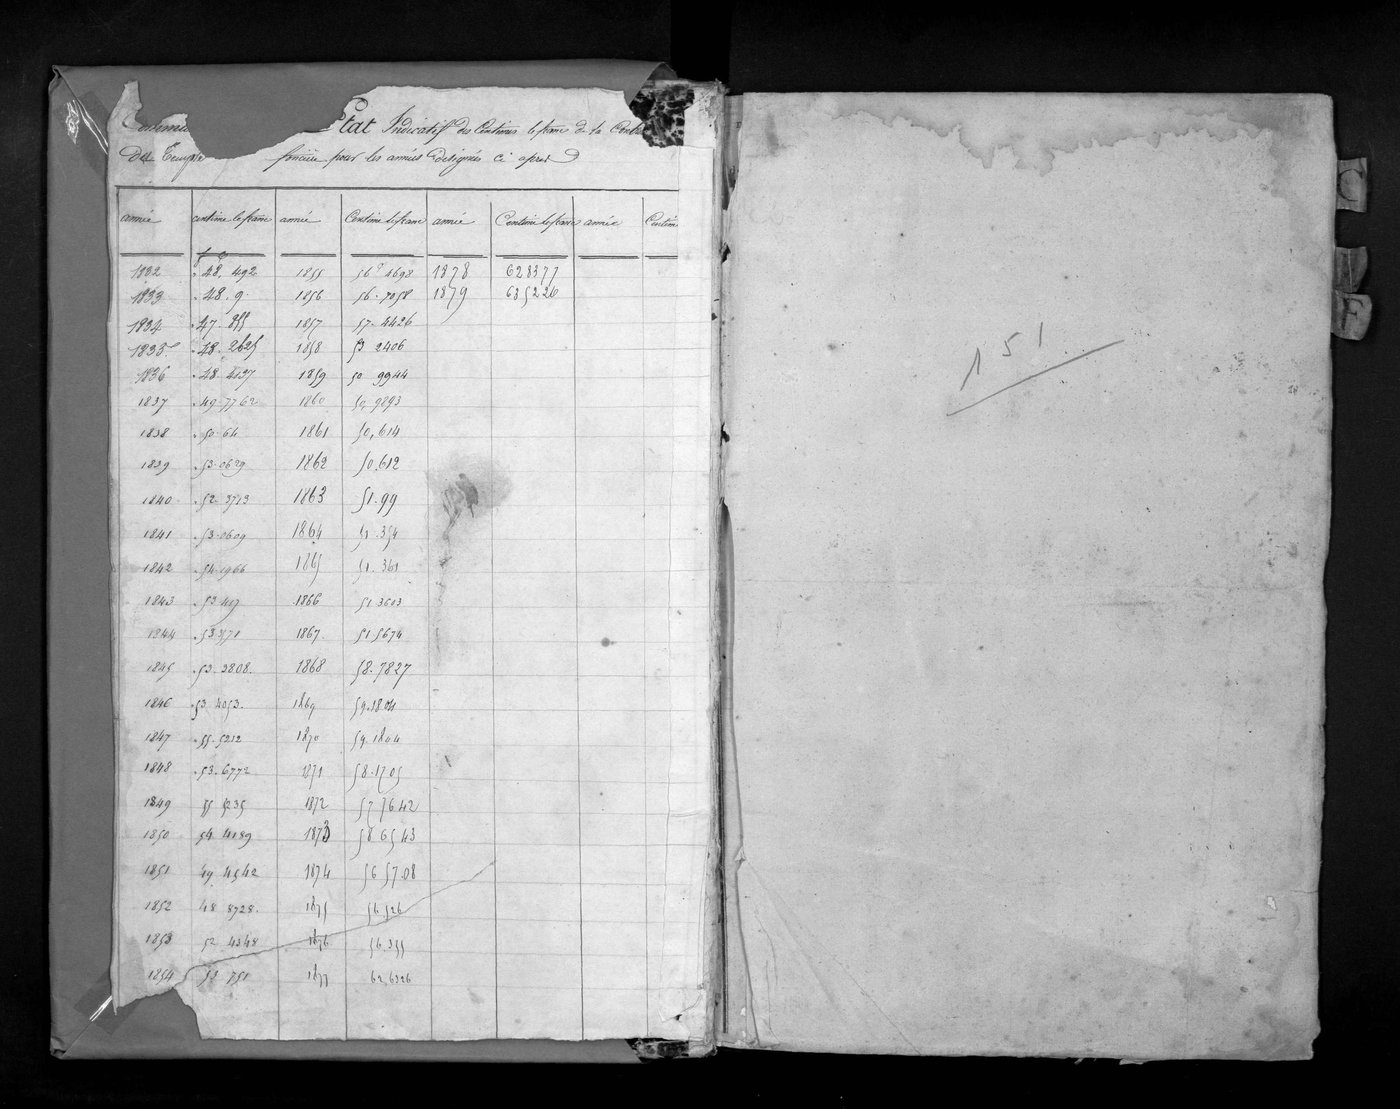 Etat Indicatif des Centimes le franc de la
du Temple foncière pour les années designés ci apres
année centime le franc année Centime le franc année Centime le franc année Centim
1832 48, 492 1855 56 4698 1878 628377
1833 48. 9 1856 56. 7058 1879 635226
1834 47. 855 1857 57. 4426
1835 48. 2625 1858 53 2406
1836 48. 4237 1859 50 9944
1837 49. 7762 1860 50, 9893
1838 50. 64 1861 50, 614
1839 53. 0629 1862 50. 612
1840 52. 3713 1863 51. 99
1841 53. 0609 1864 51. 354
1842 54. 1966 1865 51. 361
1843 53 407 1866 51 3603
1844 53 571 1867 51 5674
1845 53. 3808. 1868 58. 7827
1846 53. 4053. 1869 59. 1804
1847 55. 5212 1870 59. 1804
1848 53. 6772 1871 58. 1705
1849 55 5235 1872 57 7642
1850 54 4189 1873 58 6543
1851 49 4542 1874 56 5708
1852 48 8728. 1875 56. 526
1853 52 4348 1876 56. 355
1854 53 751 1877 62, 6326
151.
C
F